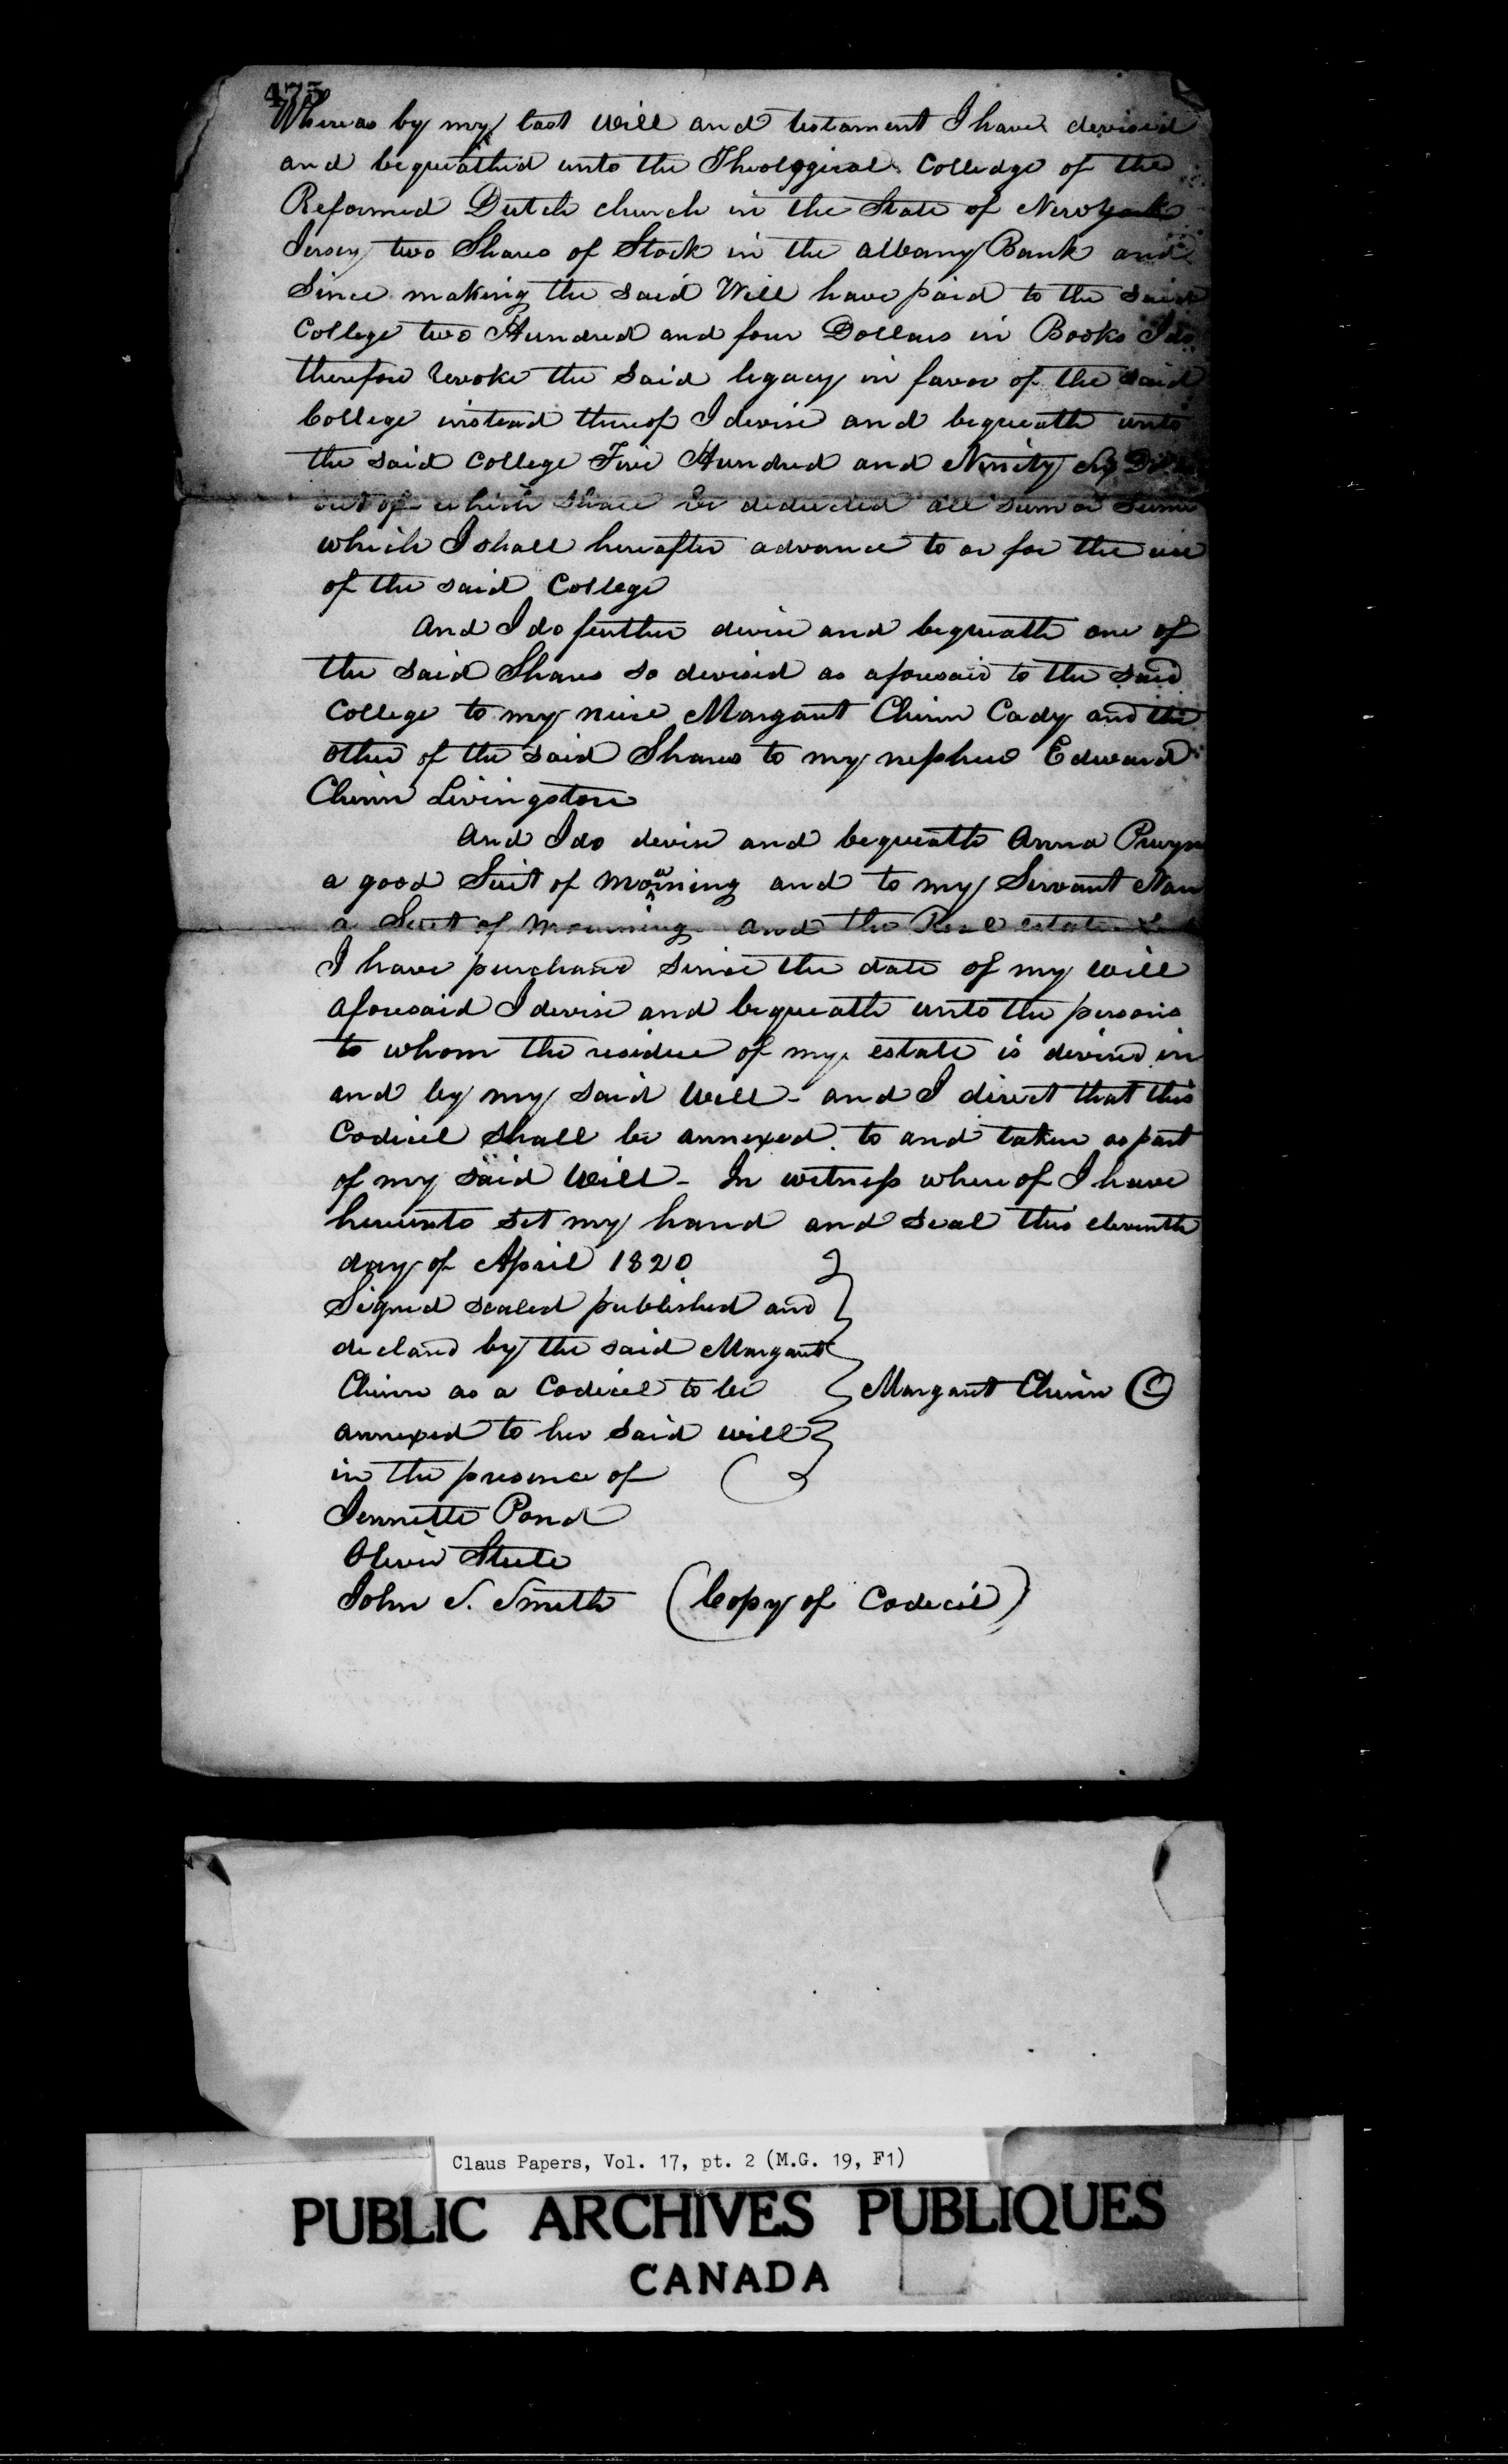 475
Whereas by my last Will and testament I have devised
and bequeathed unto the Theological Colledge of the
Reformed Dutch church in the State of New York
Jersey two Shares of Stock in the Albany Bank and
Since making the said Will have paid to the said
College two Hundred and four Dollars in Books I do
therefore revoke the said legacy in favor of the said
College instead thereof I devise and bequeath unto
the said College Five Hundred and Ninety Six
out of which shall be deducted all sum or sums
which I shall hereafter advance to or for the use
of the said College
And I do further devise and bequeath one of
the said Shares so devised as aforesaid to the said
College to my niece Margaret Chinn Cady and the
other of the said Shares to my nephew Edward
Chinn Livingston
And I do devise and bequeath Anna Pruyn
a good Suit of mourning and to my Servant Nan
a Suit of mourning and the Real estate
I have purchased since the date of my will
aforesaid I devise and bequeath unto the persons
to whom the residue of my estate is devised in
and by my said Will - and I direct that this
Codicil shall be annexed to and taken as part
of my said Will - In witness where of I have
hereunto set my hand and seal this eleventh
day of April 1820
Signed sealed published and
declared by the said Margaret
Chinn as a Codicil to be
Margaret Chinn
annexed to her said will
in the presence of
Jennette Pond
Oliver Steele
John S. Smith (Copy of Codicil)
Claus Papers, Vol. 17, pt. 2 (M.G. 19, F1)
PUBLIC ARCHIVES PUBLIQUES
CANADA